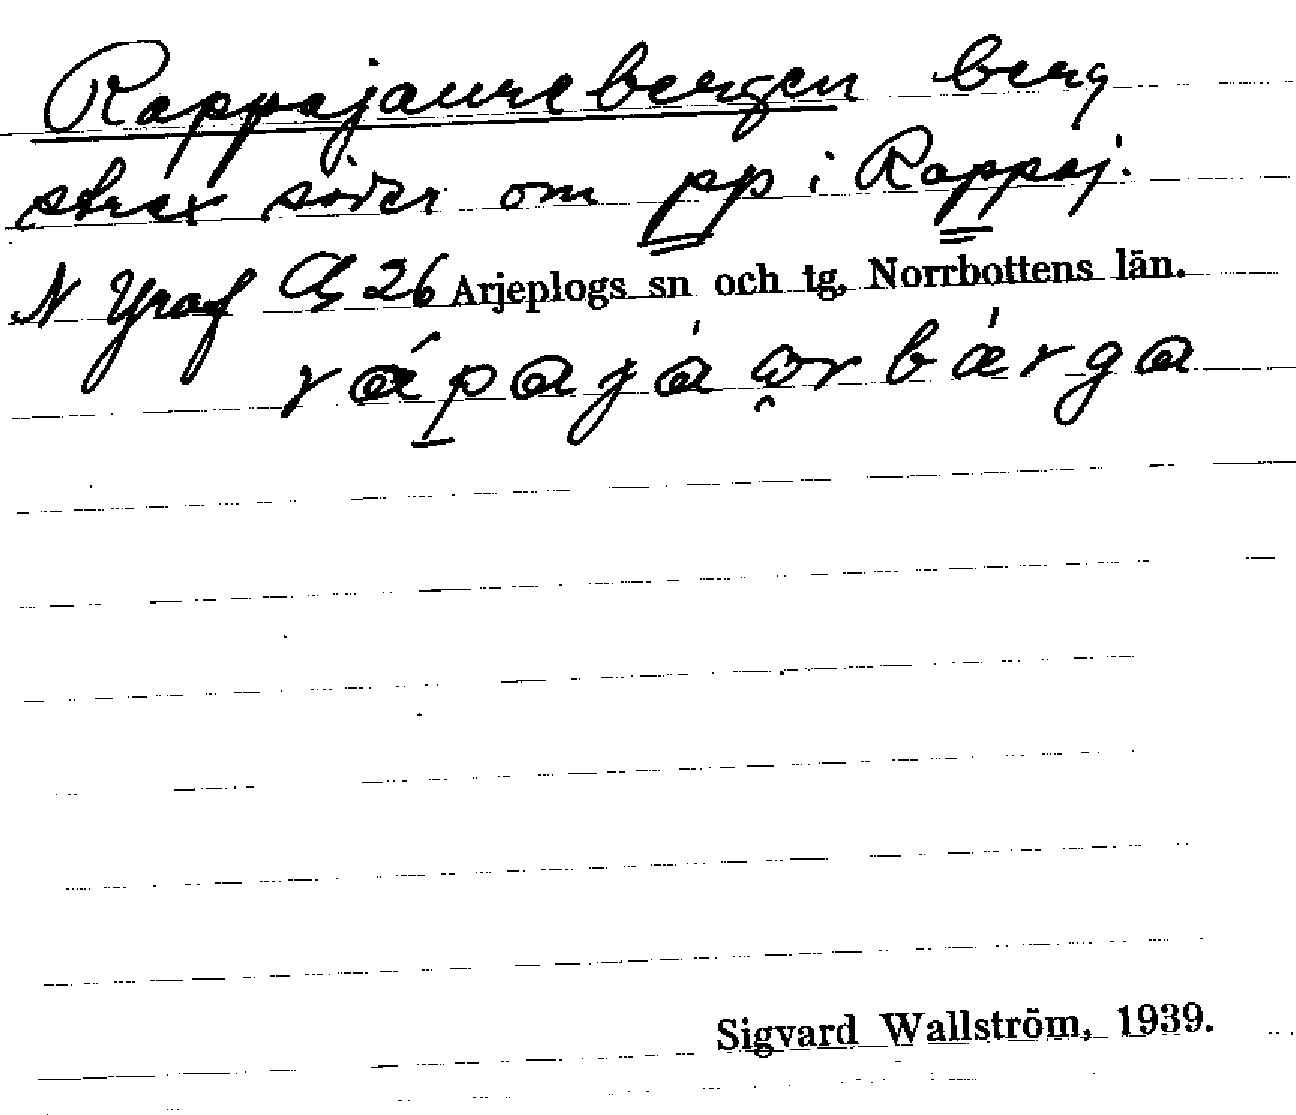 Rappajaurebergen berg
strax söder om pp i Rappaj.
N Ygraf Cb 26 Arjeplogs sn och tg, Norrbottens län.
Sigvard Wallström, 1939.